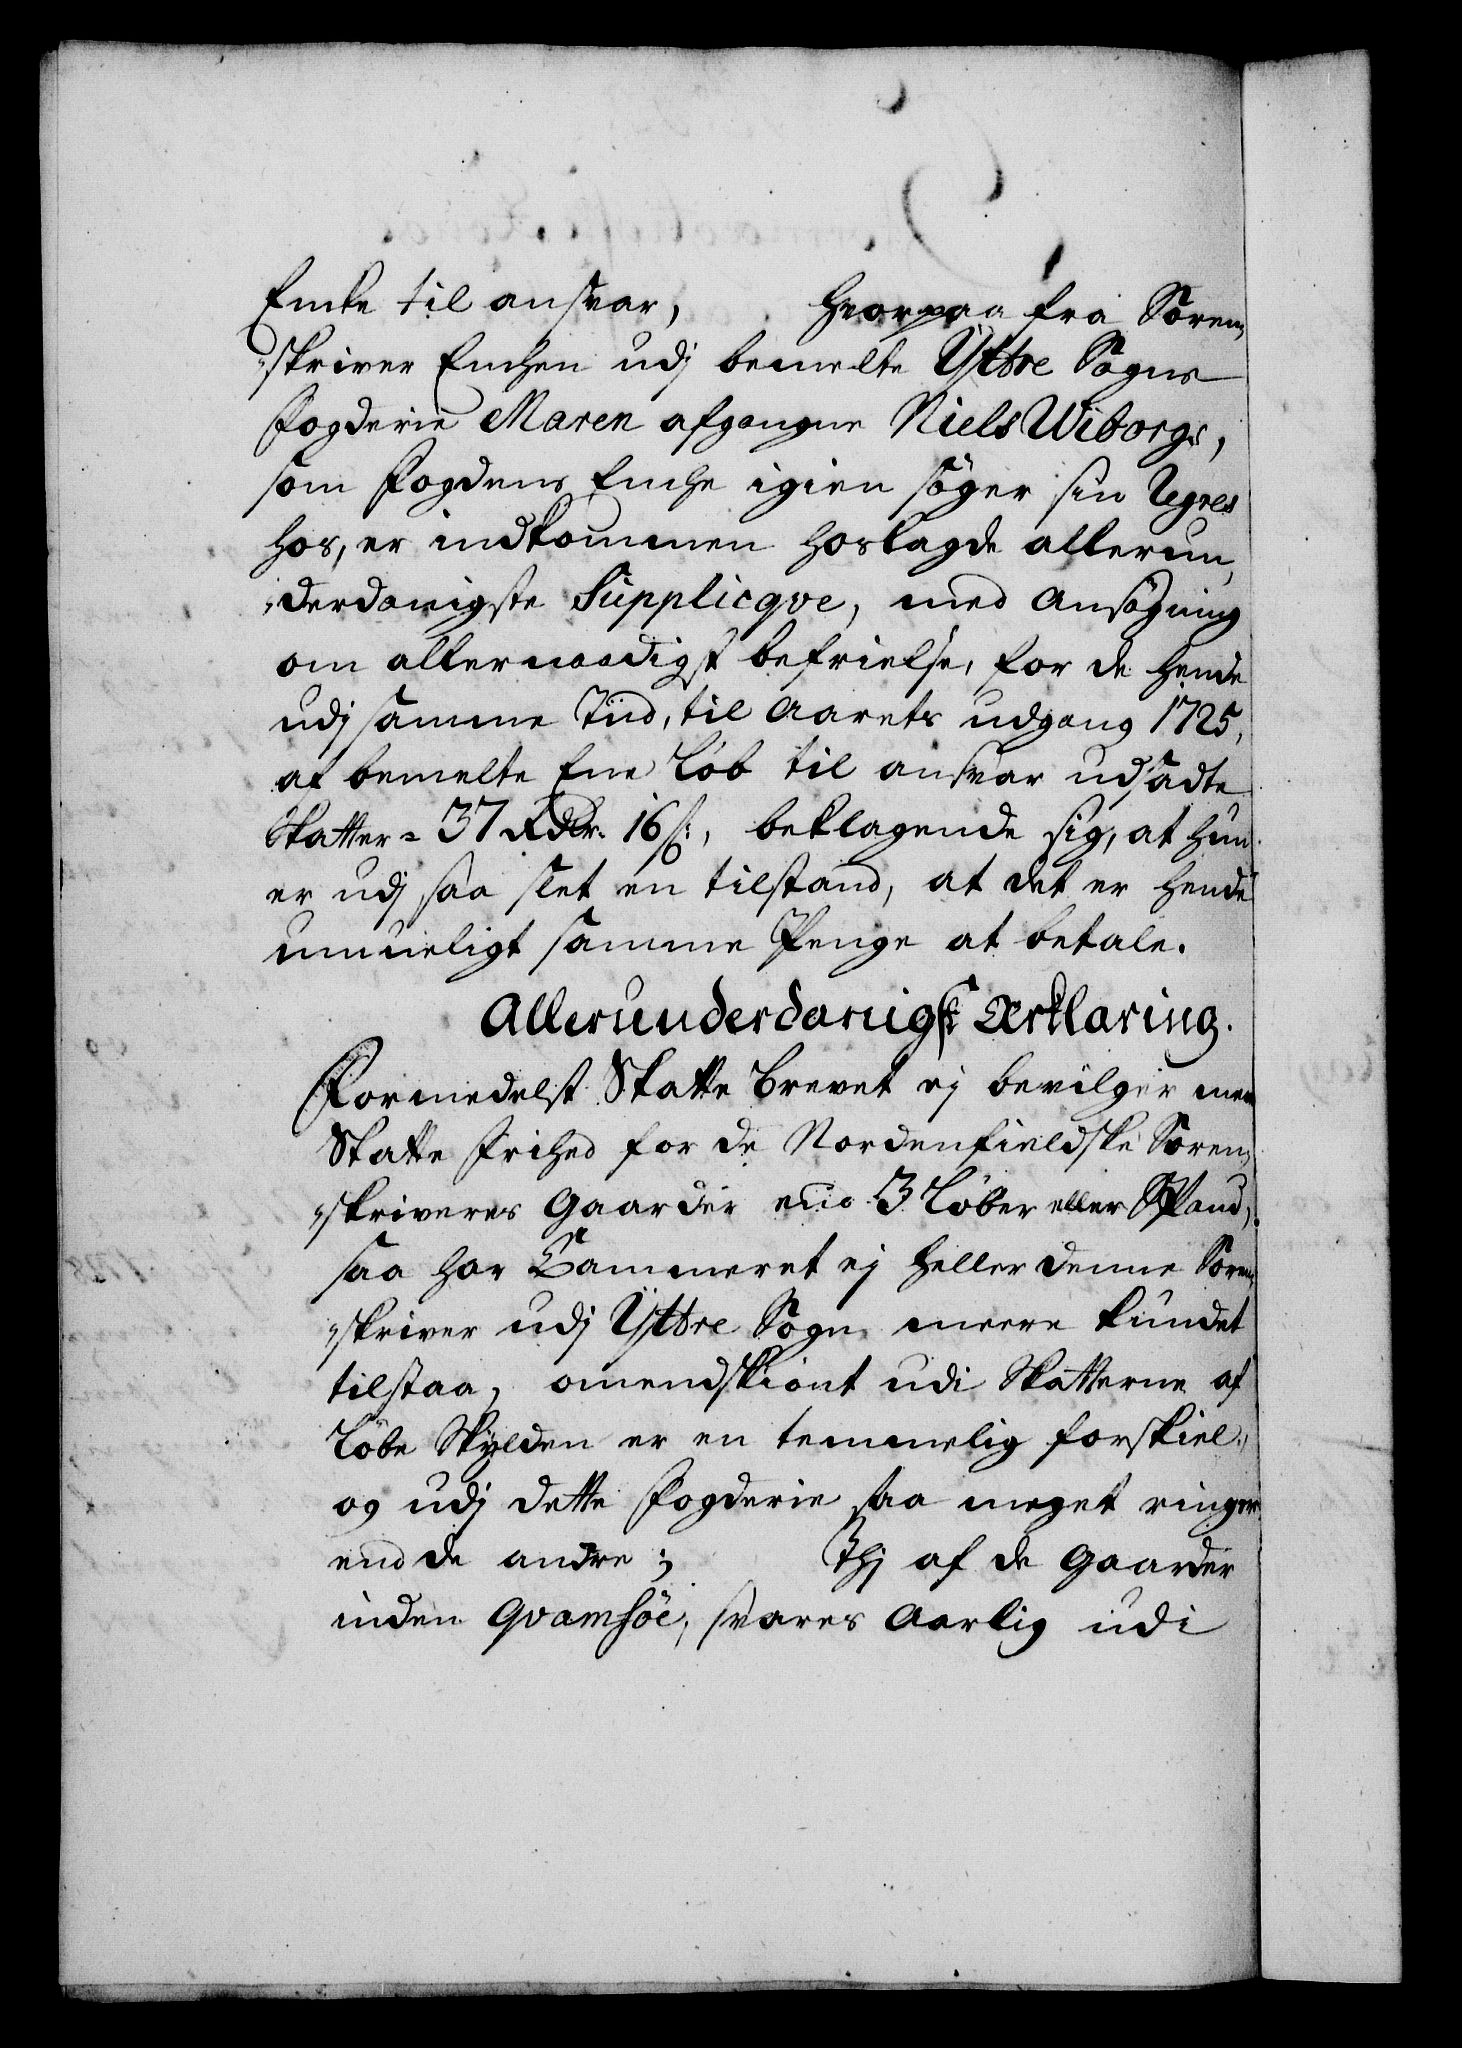 Encke til ansvar, hvorpaa fra Soren-
skriver Enchen udj bemelte Ÿttre Sogns
Fogderie Maren afgangne Niels Wiborgs,
som Fogdens Enche igien söger sin Regres
hos, er indkommen hoslagde allerun-
derdanigste Supplicqve, med Ansögning
om allernaadigst befrielse, for de hende
udj samme Tiid, til Aarets udgang 1725,
af bemelte Ene Löb til ansvar udsadte
Skatter = 37 Rdlr. 16 s:, beklagende sig, at hun
er udj saa slet en tilstand, at det er hende
umueligt samme Penge at betale.
Allerunderdanigst Erklaring.
Formedelst Skatte Brevet ej bevilger meer
Skatte Frihed for de Nordenfieldske Soren-
skriveres Gaarder end 3 Löber eller Spand,
saa har Cammeret ej heller denne Soren-
skriver udj Ÿttre Sogn meere kundet
tilstaa, omendskiönt udi Skatterne af
Löbe Skylden er en temmelig forskiel,
og udj dette Fogderie saa meget ringer
end de andre; Thj af de Gaarder
inden Qvamsöe, svares Aarlig udi